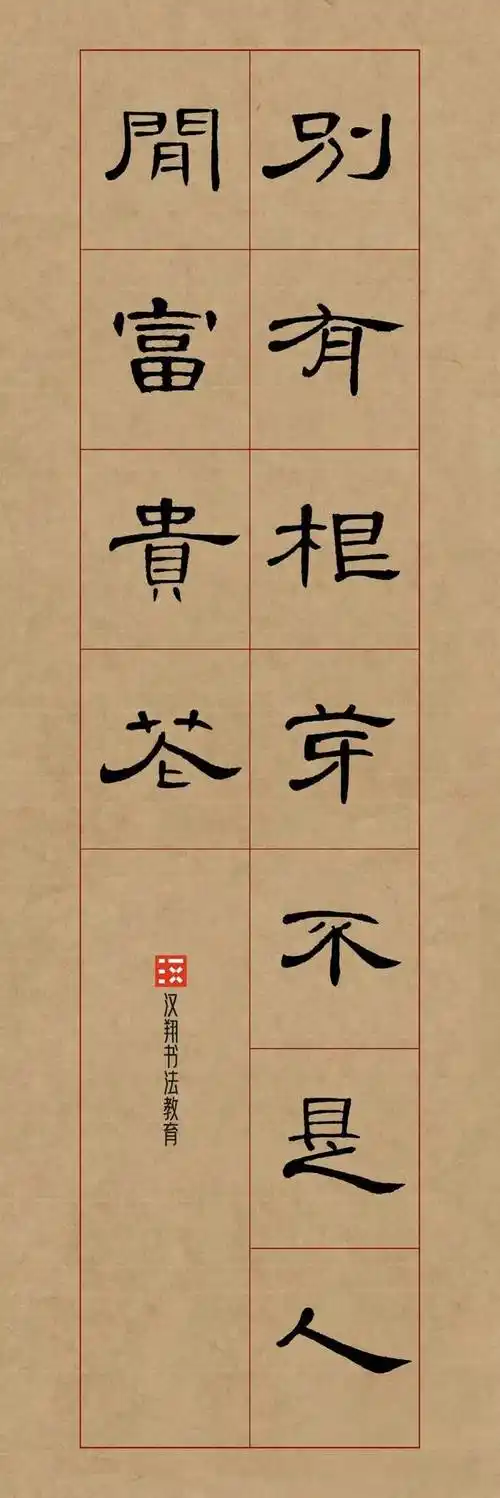 別有根芽不是人
間富貴花
汉翔书法教育